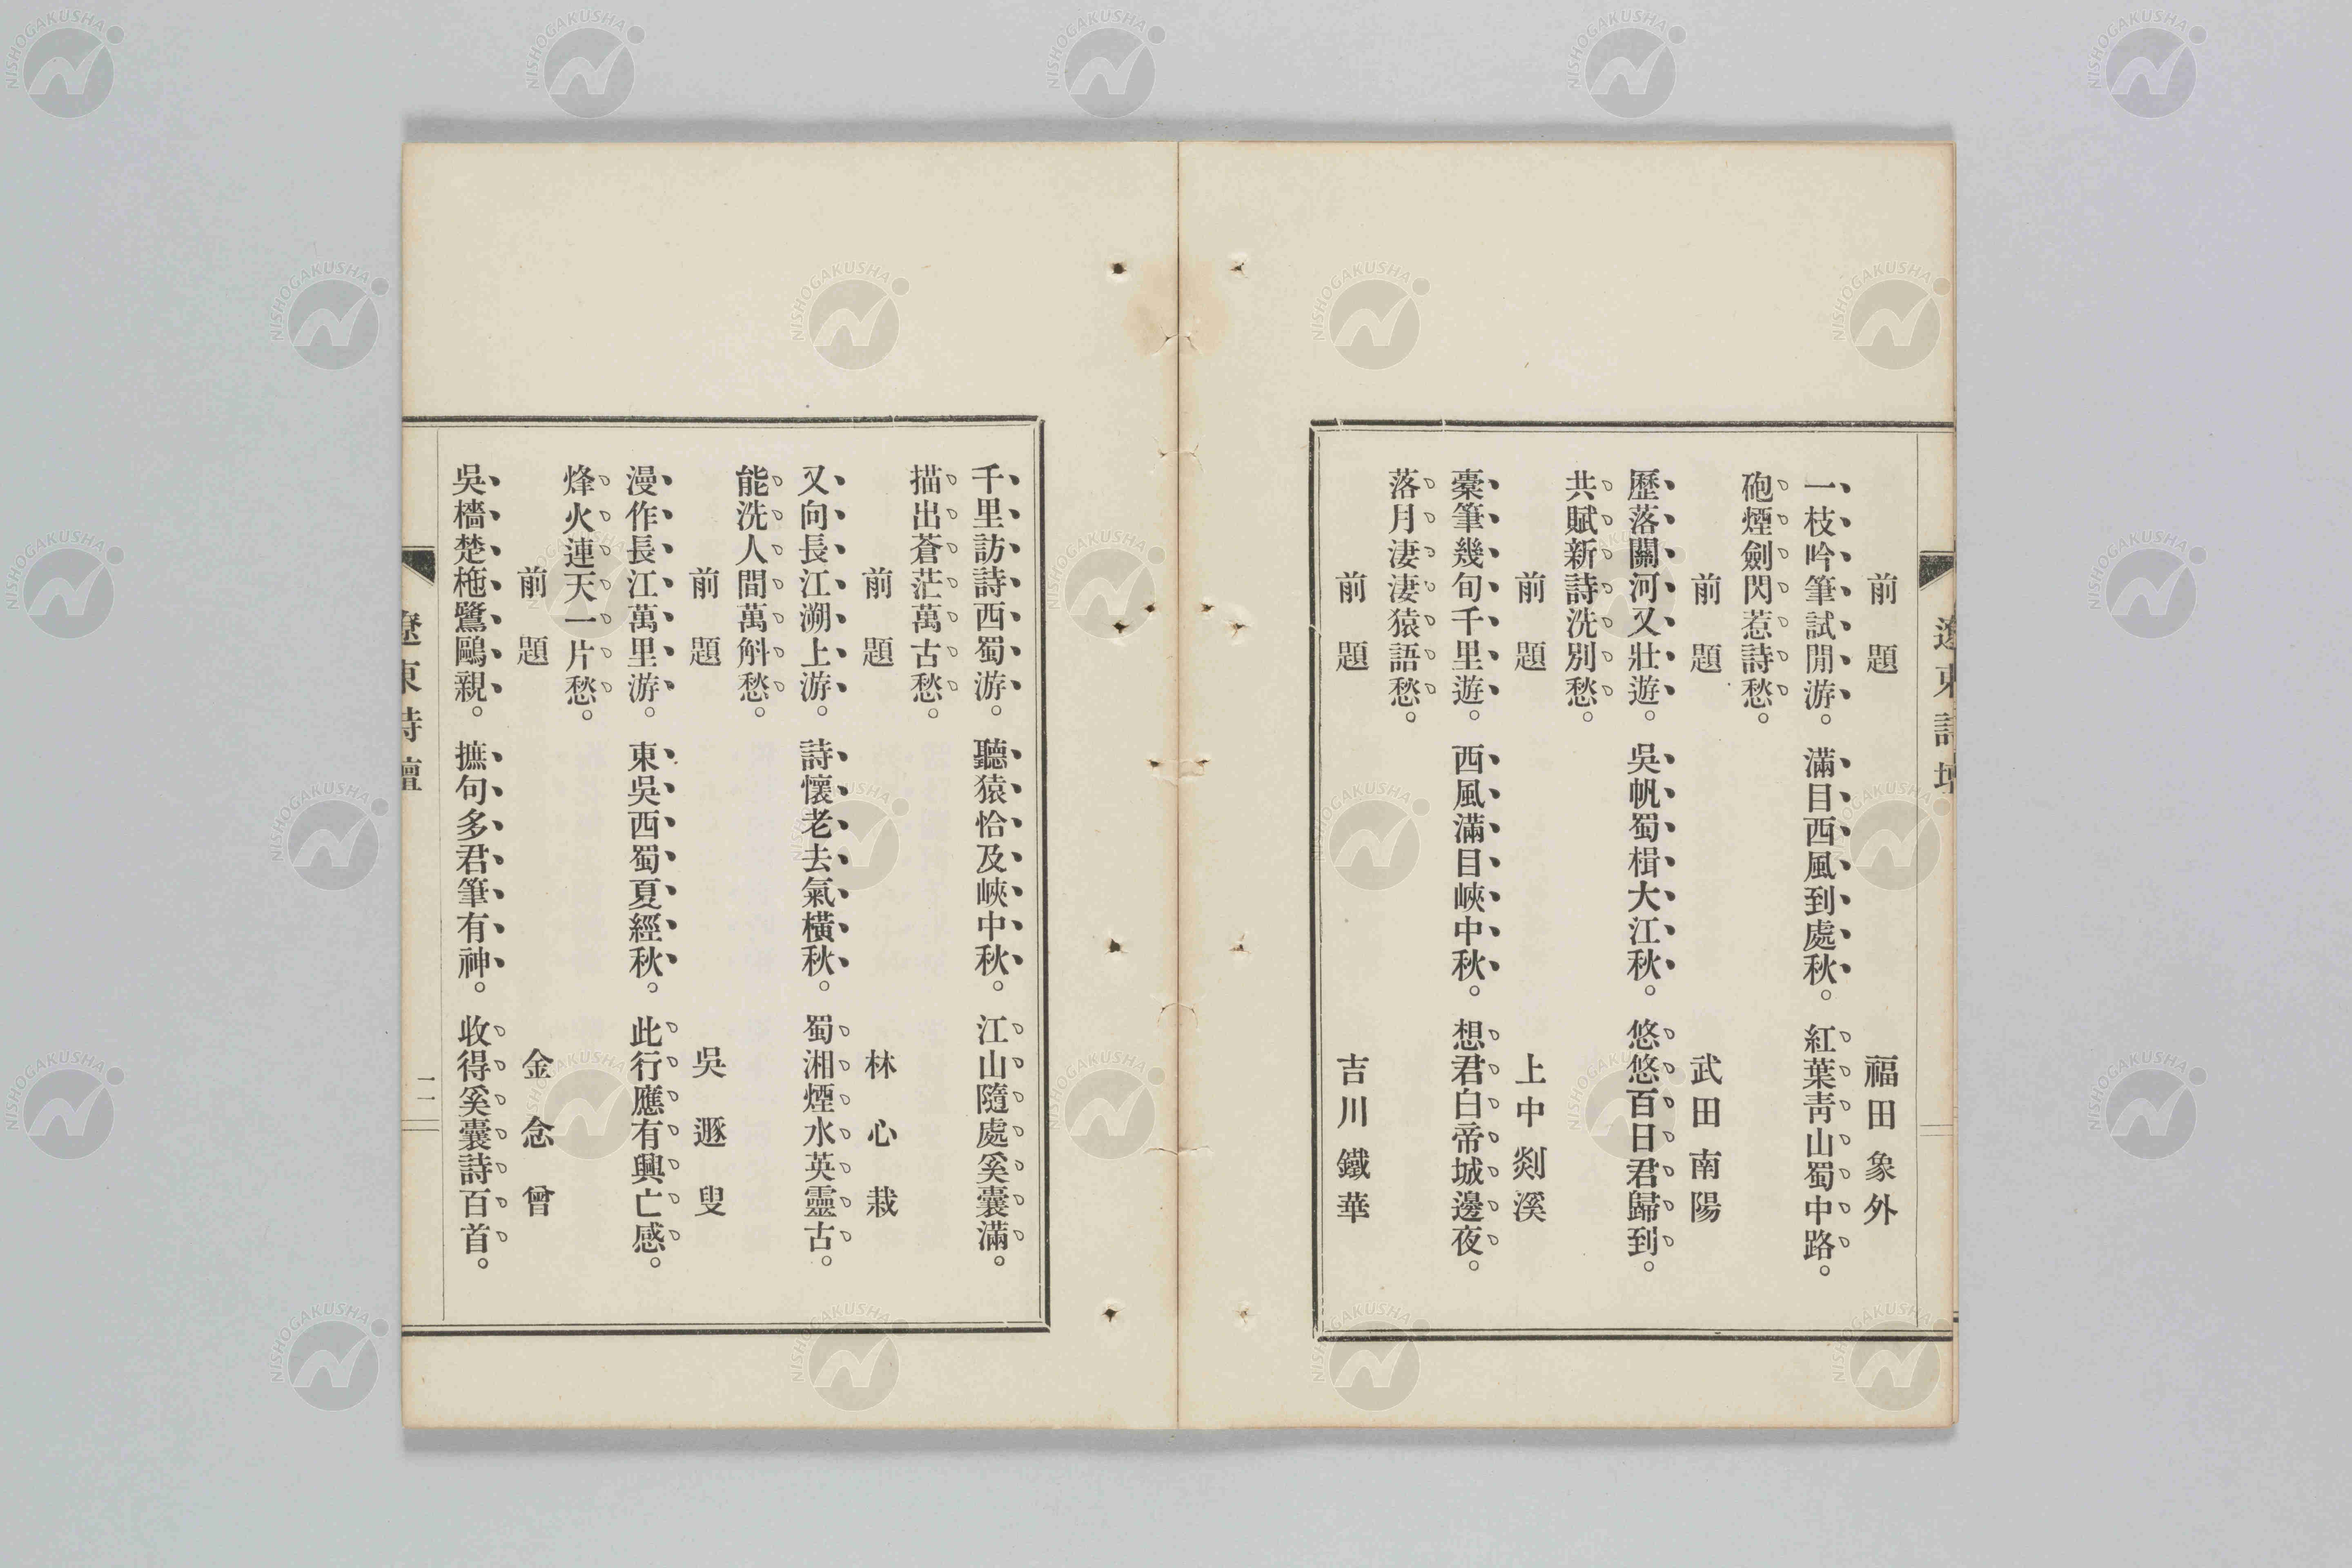 遼東詩壇
前題 福田象外
一枝吟筆試閒游。滿目西風到處秋。紅葉靑山蜀中路。
砲煙劍閃惹詩愁。
前題 武田南陽
歷落關河又壯遊。吳帆蜀楫大江秋。悠悠百日君歸到。
共賦新詩洗別愁。
前題 上中剡溪
橐筆幾旬千里遊。西風滿目峽中秋。想君白帝城邊夜。
落月凄凄猿語愁。
前題 吉川鐵華
千里訪詩西蜀游。聽猿恰及峽中秋。江山隨處奚囊滿。
描出蒼茫萬古愁。
前題 林心栽
又向長江溯上游。詩懷老去氣橫秋。蜀湘煙水英靈古。
能洗人間萬斛愁。
前題 吳遯叟
漫作長江萬里游。東吳西蜀夏經秋。此行應有興亡感。
烽火連天一片愁。
前題 金念曾
吳檣楚柂鷺鷗親。摭句多君筆有神。收得奚囊詩百首。
遼東詩壇
二
NISHOGAKUSHA